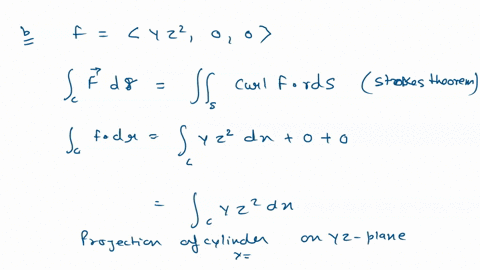 b F = < y z², 0, 0 >
∫_C F⃗ dr = ∬_S Curl F · r dS (Strokes theorem)
∫_C f · dr = ∫_C y z² dx + 0 + 0
= ∫_C y z² dx
Projection of cylinder on yz-plane
x=